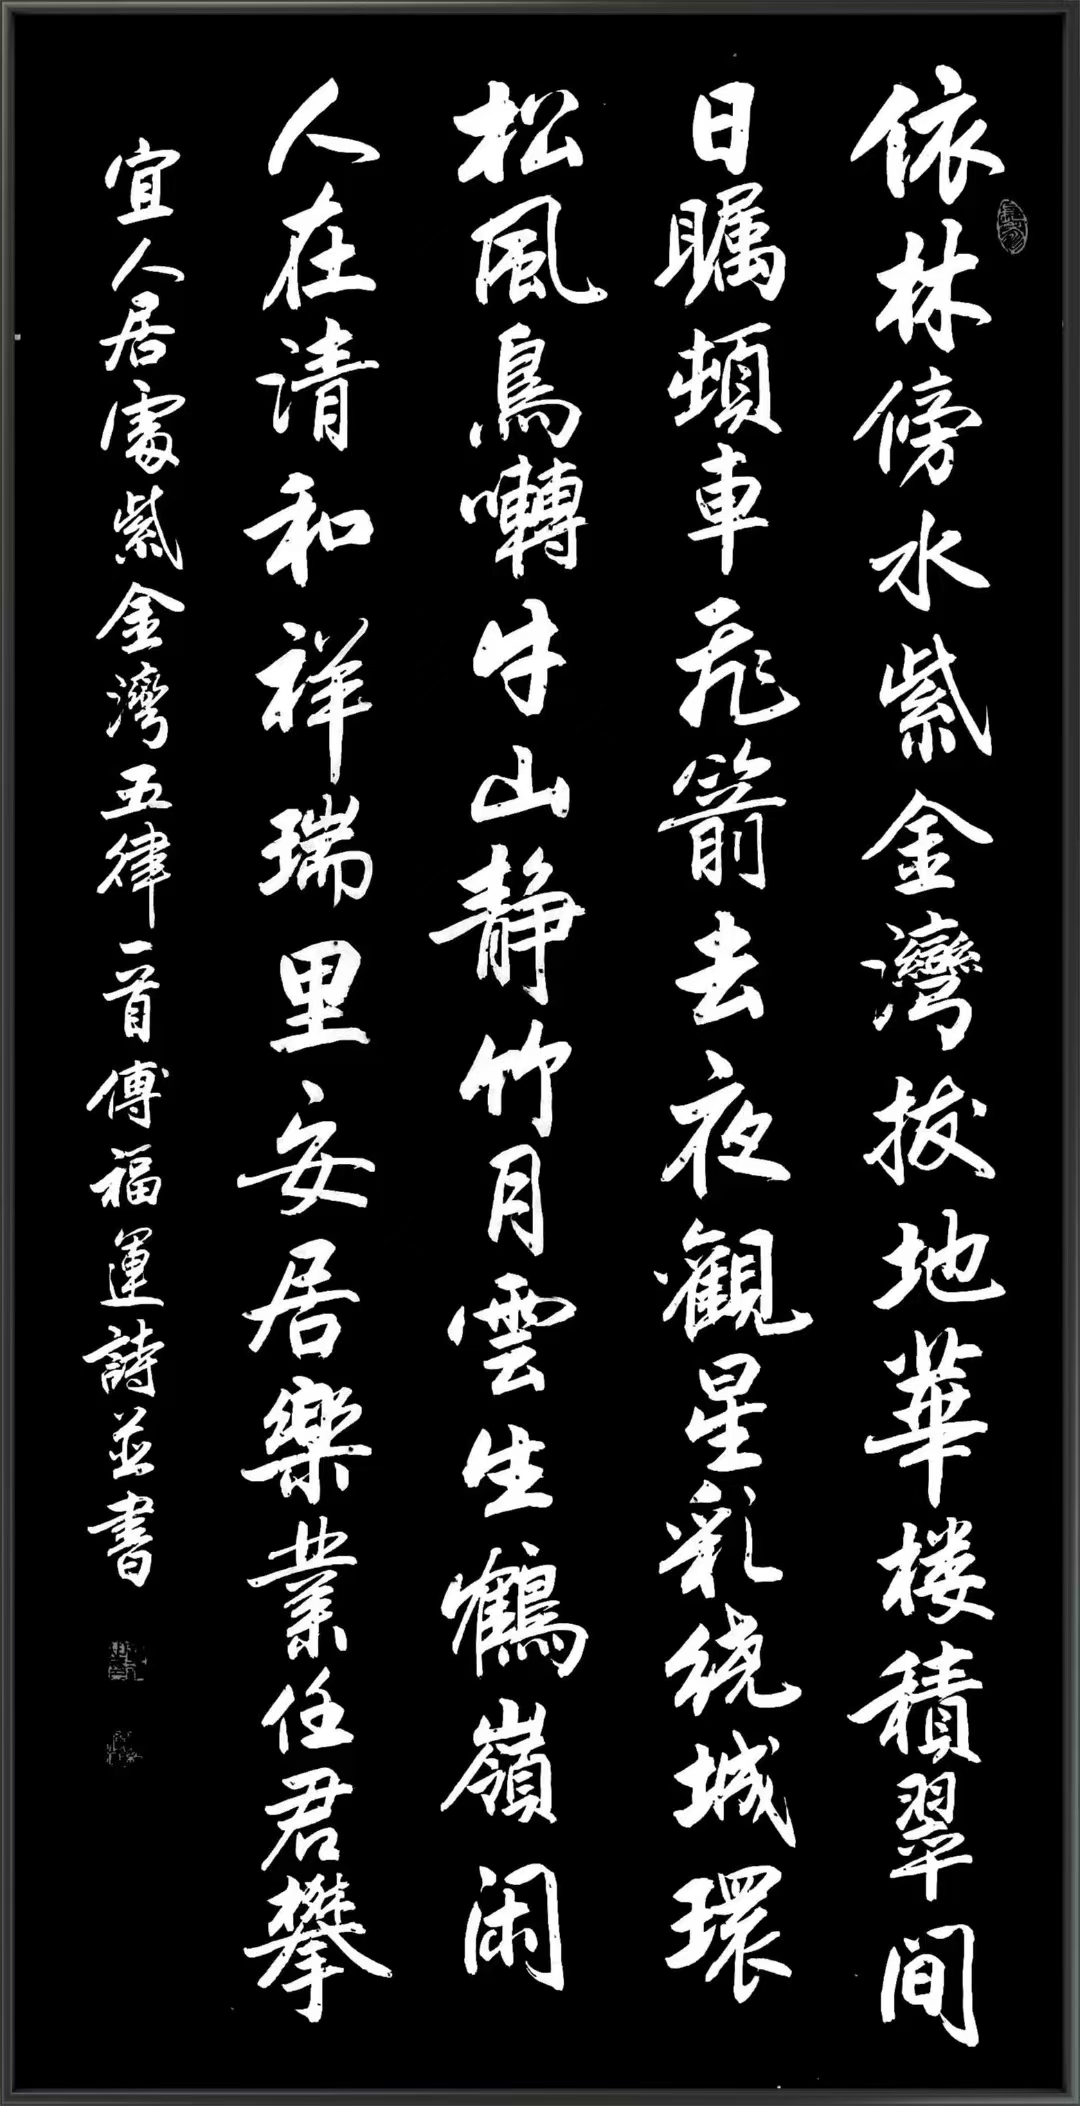 依林傍水紫金灣拔地華楼積翠间
日瞩頓車飛箭去夜觀星彩绕城環
松風鳥囀牛山静竹月雲生鶴嶺闲
人在清和祥瑞里安居樂業任君攀
宜人居處紫金灣五律一首傅福運詩並書